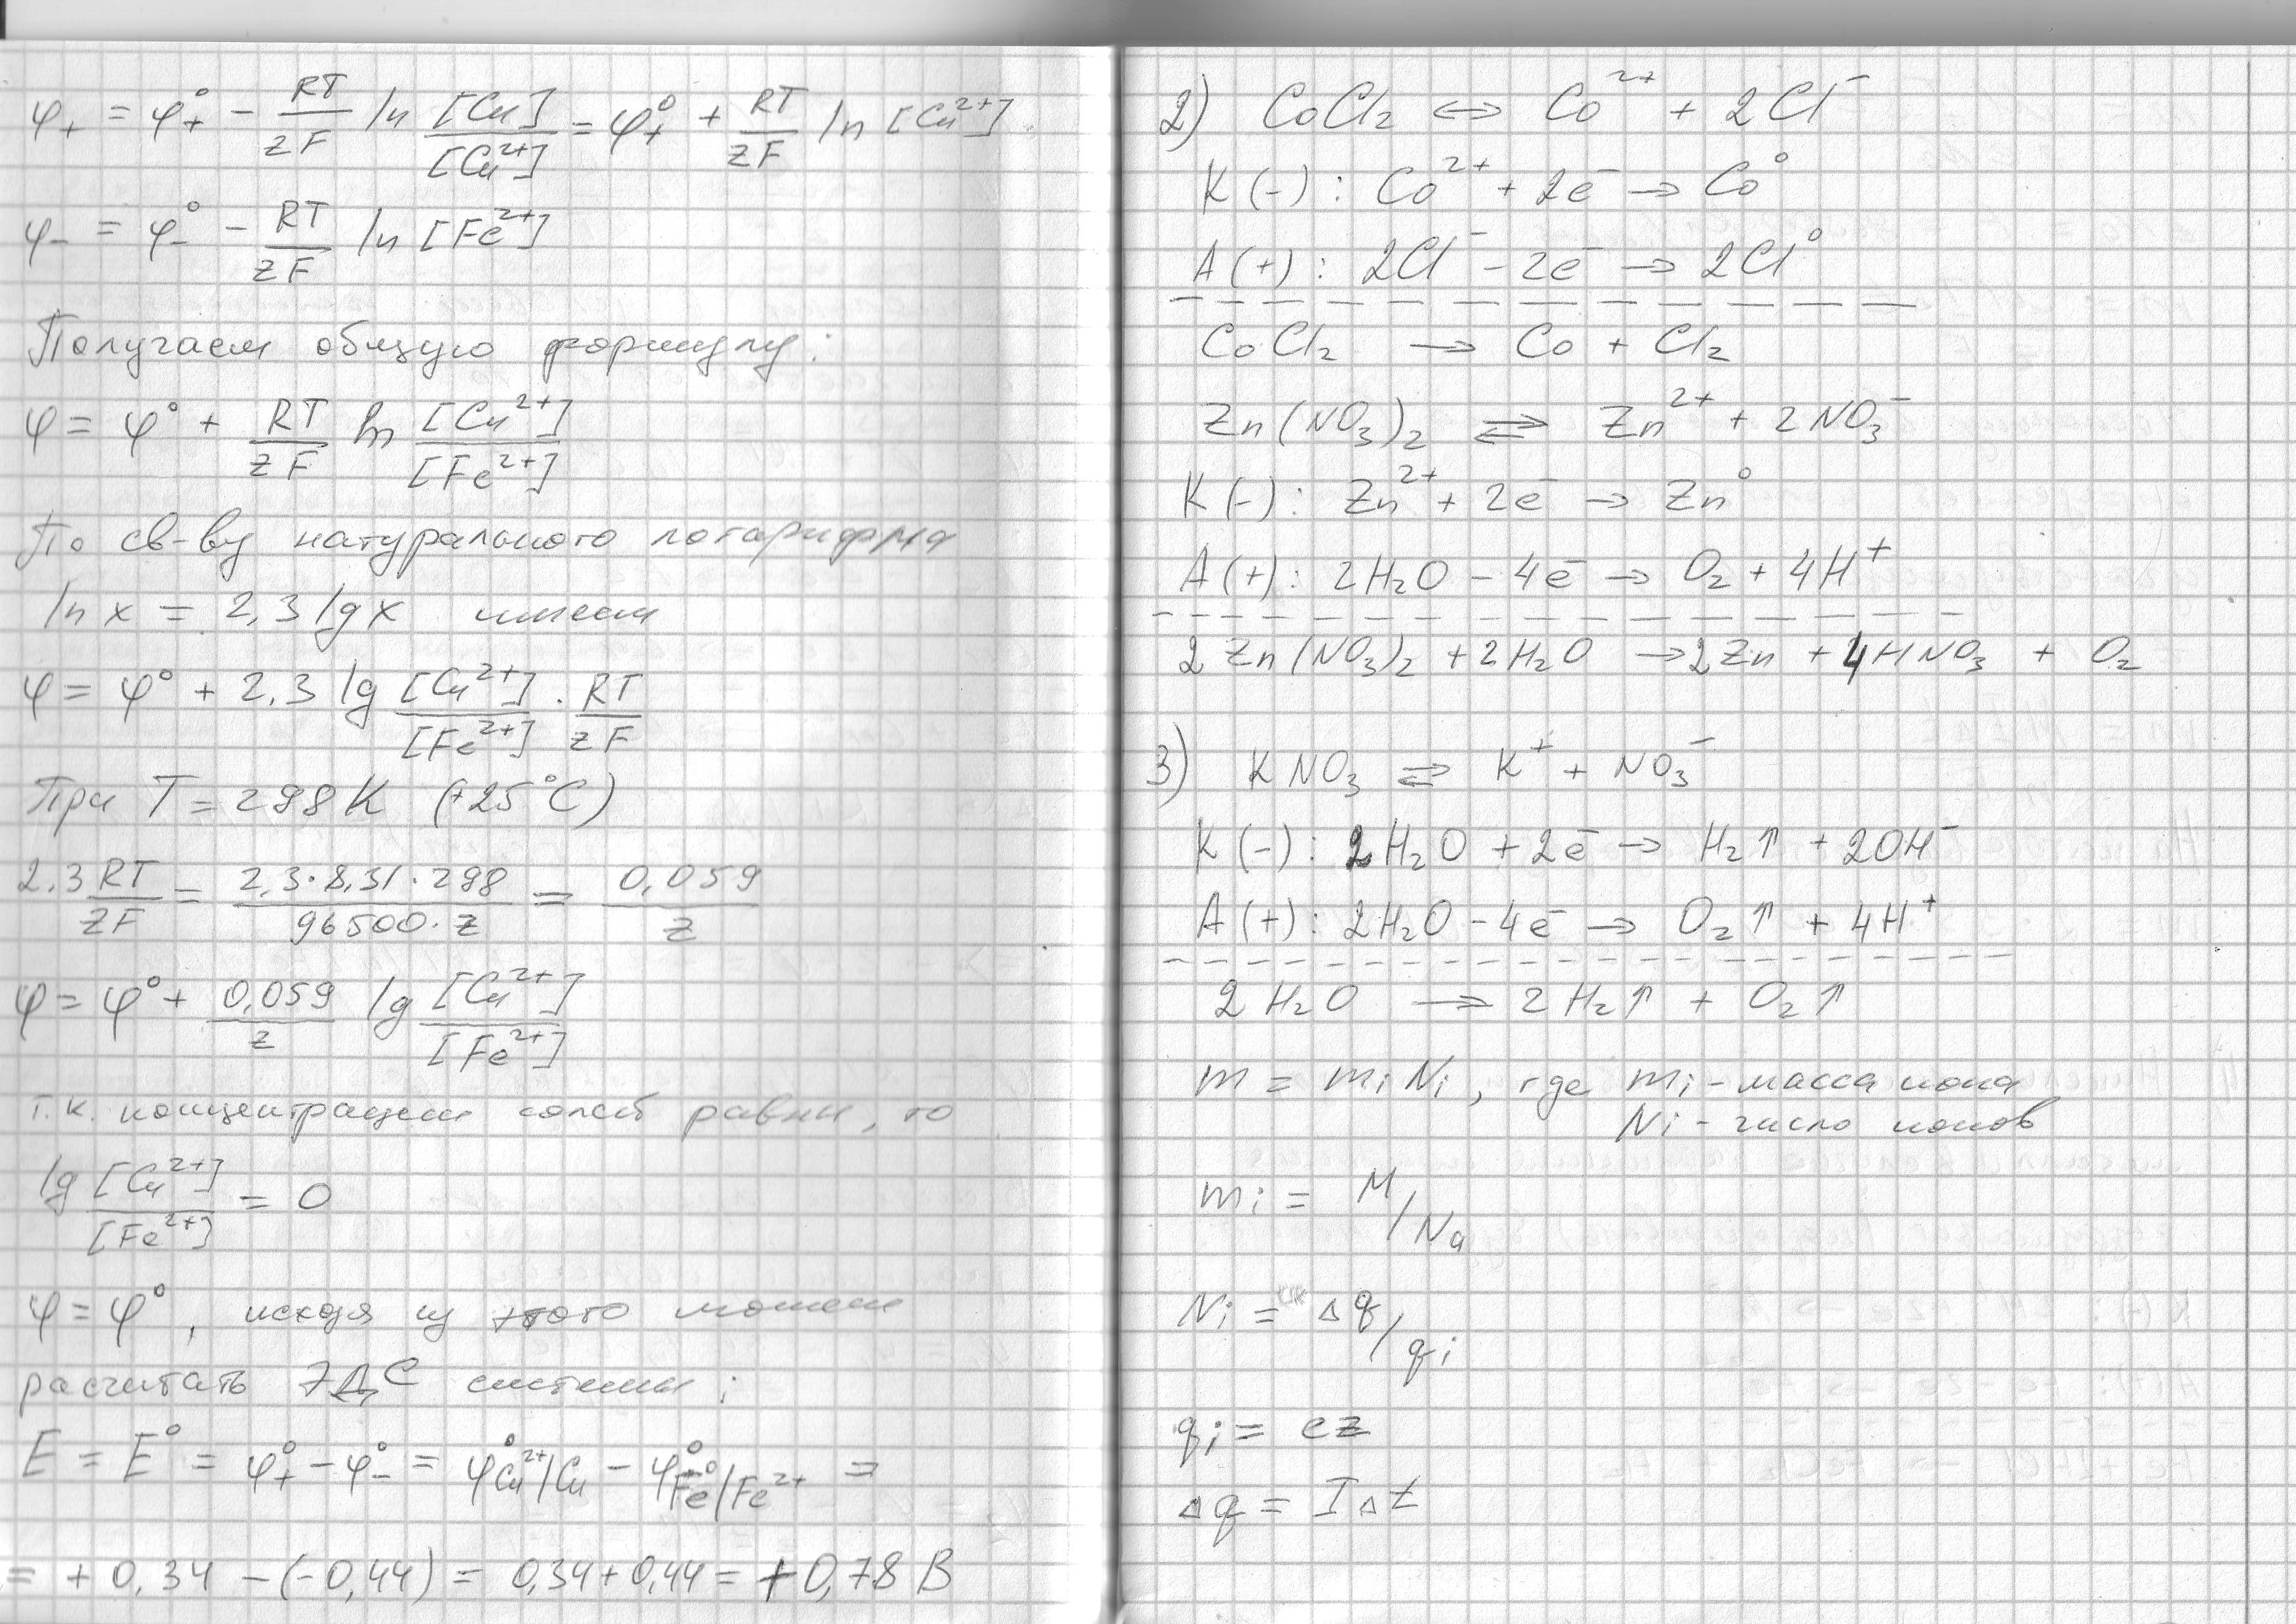 φ₊ = φ₊° − RT/zF ln [Cu]/[Cu²⁺] = φ₊° + RT/zF ln [Cu²⁺]
φ₋ = φ₋° − RT/zF ln [Fe²⁺]
Получаем общую формулу:
φ = φ° + RT/zF ln [Cu²⁺]/[Fe²⁺]
По св-ву натурального логарифма
ln x = 2,3 lg x имеем
φ = φ° + 2,3 lg [Cu²⁺]/[Fe²⁺] · RT/zF
При T = 298 K (+25°C)
2,3 RT/zF = 2,3·8,31·298/96500·z = 0,059/z
φ = φ° + 0,059/z lg [Cu²⁺]/[Fe²⁺]
т.к. концентрации солей равны, то
lg [Cu²⁺]/[Fe²⁺] = 0
φ = φ°, исходя из этого можем
расчитать ЭДС системы:
E = E° = φ₊° − φ₋° = φ°Cu²⁺/Cu − φ°Fe°/Fe²⁺ =
= + 0,34 − (−0,44) = 0,34 + 0,44 = +0,78 В
2) CoCl₂ ⇔ Co²⁺ + 2Cl⁻
K(−): Co²⁺ + 2e̅ → Co°
A(+): 2Cl⁻ − 2e̅ → 2Cl°
CoCl₂ → Co + Cl₂
Zn(NO₃)₂ ⇌ Zn²⁺ + 2NO₃⁻
K(−): Zn²⁺ + 2e̅ → Zn°
A(+): 2H₂O − 4e̅ → O₂ + 4H⁺
2Zn(NO₃)₂ + 2H₂O → 2Zn + 4HNO₃ + O₂
3) KNO₃ ⇌ K⁺ + NO₃⁻
K(−): 2H₂O + 2e̅ → H₂↑ + 2OH⁻
A(+): 2H₂O − 4e̅ → O₂↑ + 4H⁺
2H₂O → 2H₂↑ + O₂↑
m = mᵢNᵢ, где mᵢ - масса иона
Nᵢ - число ионов
mᵢ = M/Nₐ
Nᵢ = Δq/qᵢ
qᵢ = ez
Δq = IΔt